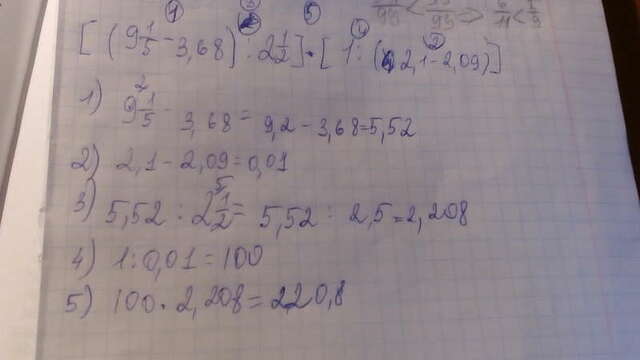 [(9 1/5 - 3,68) : 2 1/2] · [1 : (2,1 - 2,09)]
1) 9 1/5 - 3,68 = 9,2 - 3,68 = 5,52
2) 2,1 - 2,09 = 0,01
3) 5,52 : 2 1/2 = 5,52 : 2,5 = 2,208
4) 1 : 0,01 = 100
5) 100 · 2,208 = 220,8